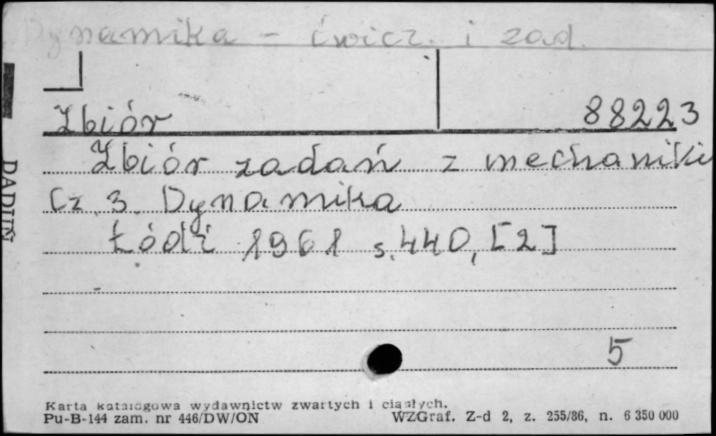 Dynamika - ćwicz. i zad.
Zbiór 88223
Zbiór zadań z mechaniki
Cz. 3. Dynamika
Łódź 1961 s. 440, [2]
5
Karta katalogowa wydawnictw zwartych i ciągłych.
Pu-B-144 zam. nr 446/DW/ON WZGraf. Z-d 2, z. 255/86, n. 6 350 000